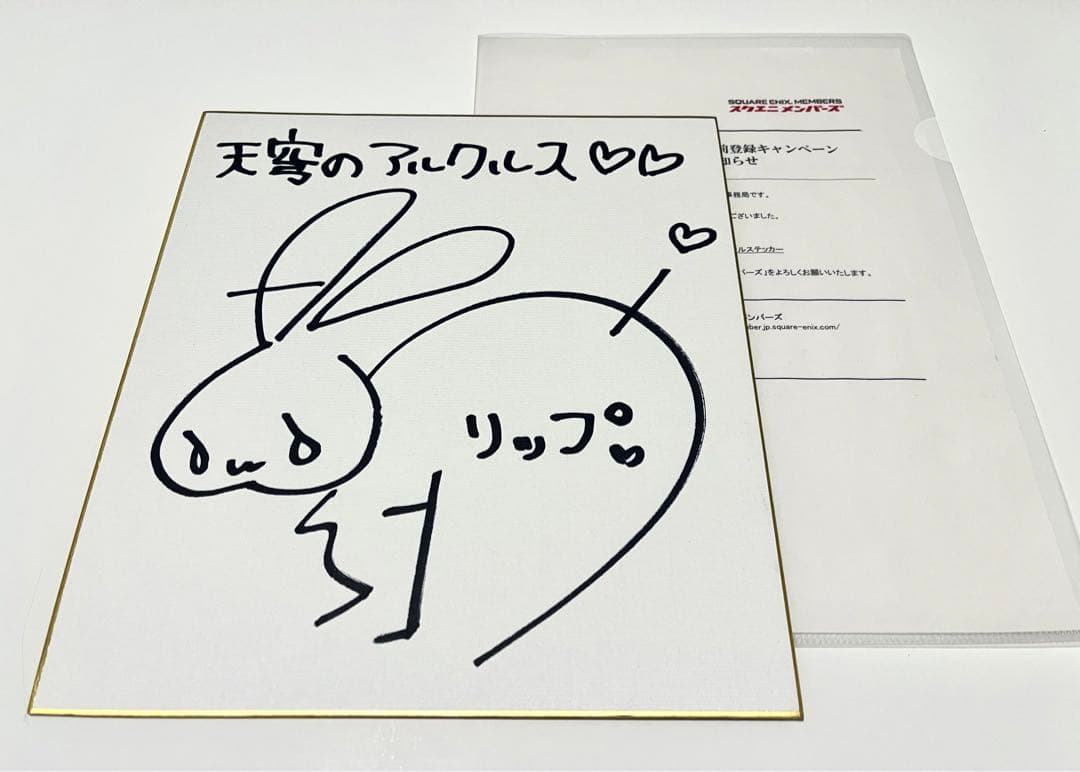 天穹のアルクルス♡♡
リップ
SQUARE ENIX MEMBERS
スクエニ メンバーズ
前登録キャンペーン
知らせ
事務局です。
ございました。
ルステッカー
バーズ」をよろしくお願いいたします。
ンバーズ
ber.jp.square-enix.com/